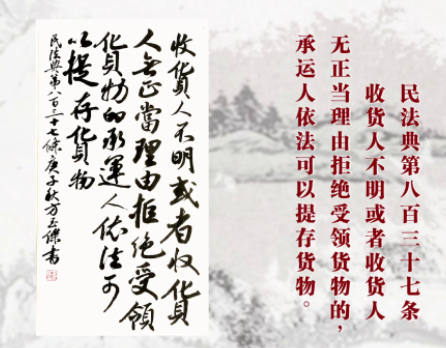 民法典第八百三十七条
收货人不明或者收货人
无正当理由拒绝受领货物的，
承运人依法可以提存货物。
收貨人不明或者收貨
人无正當理由拒绝受領
貨物的承運人依法可
以提存貨物
民法典第八百三十七條庚子秋方玉傑書